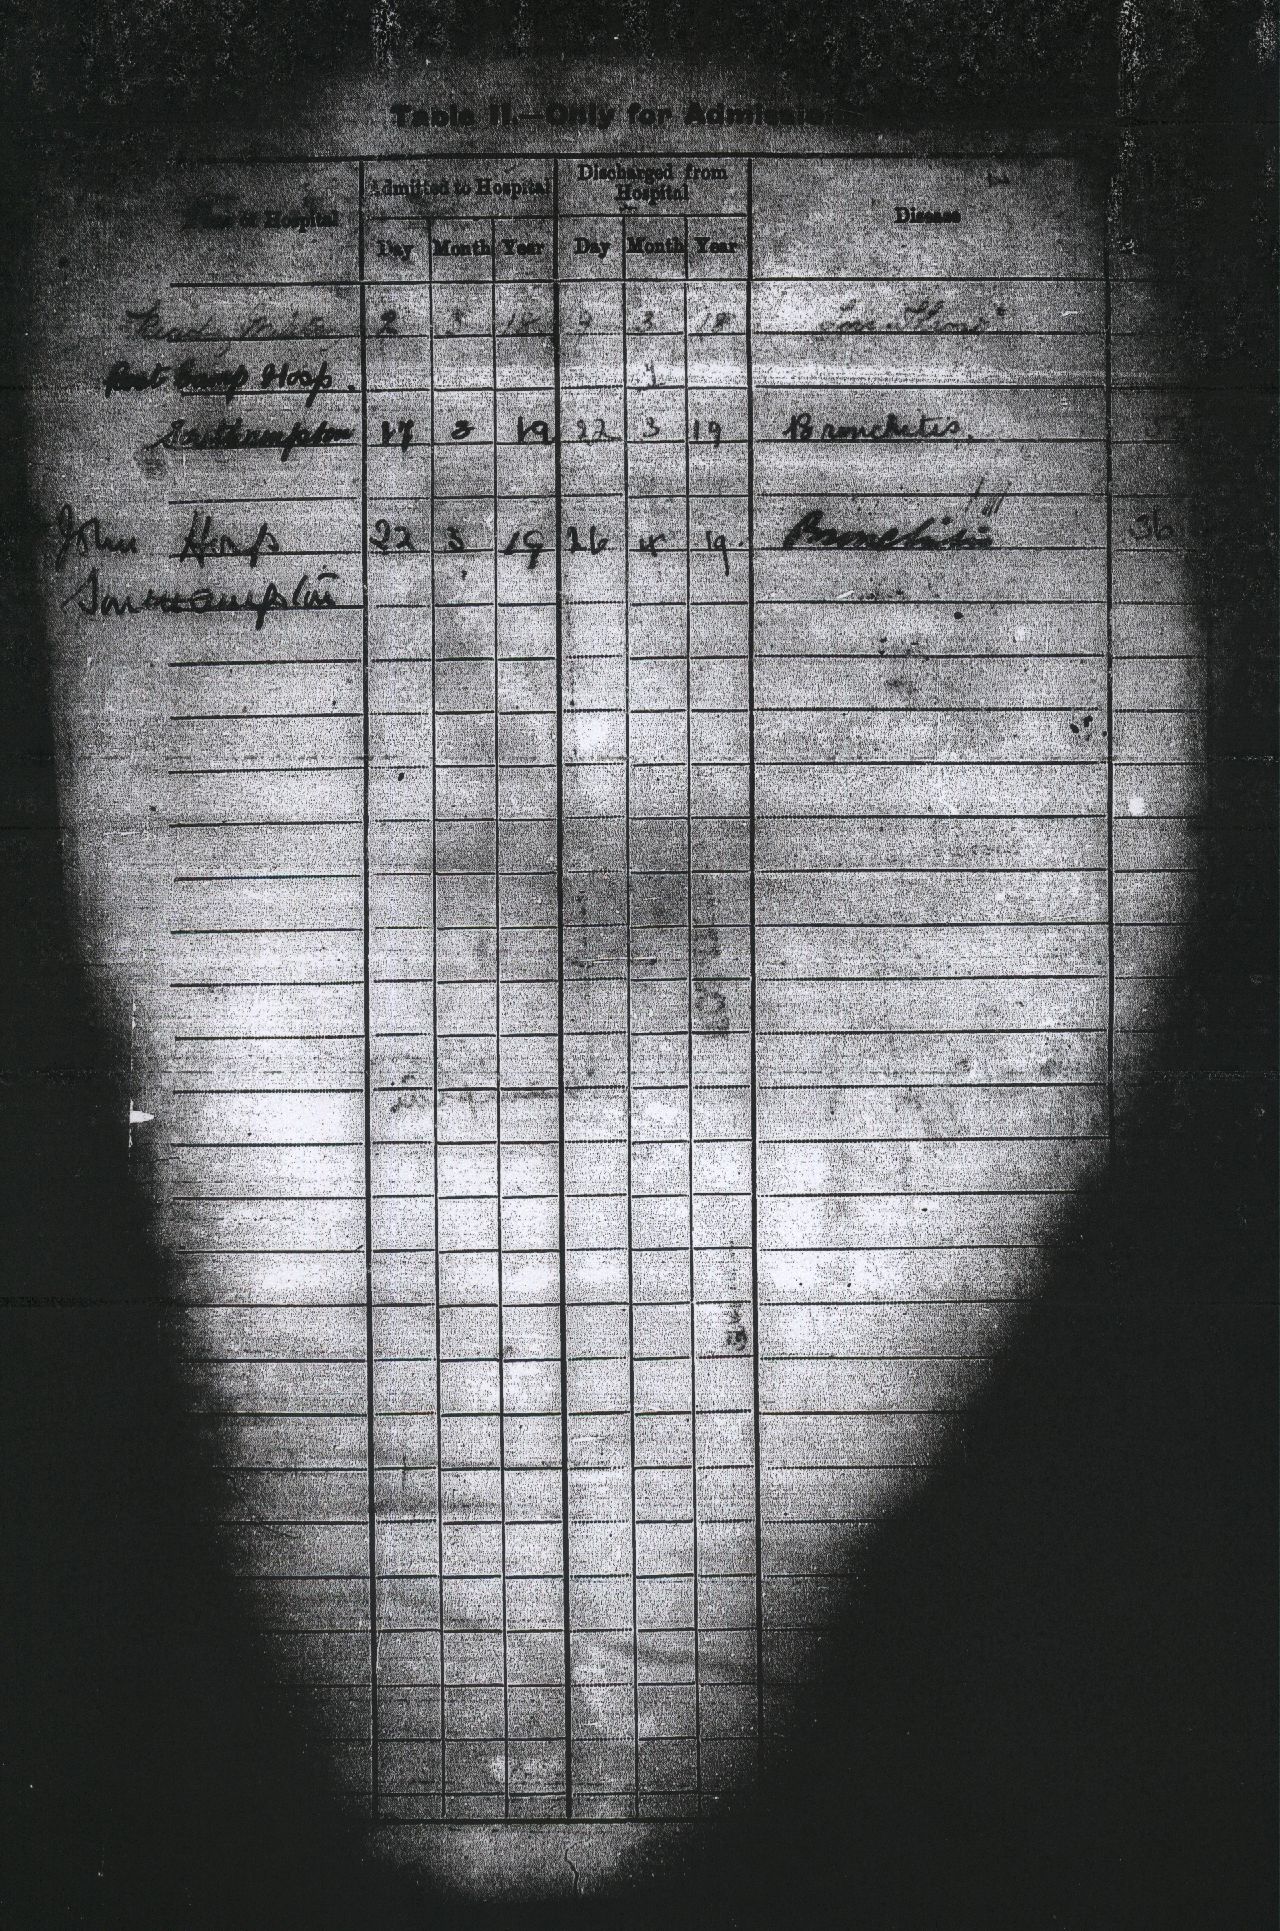 Table II.—Only for
Admitted to Hospital Discharged from Hospital
Hospital Day Month Year Day Month Year Disease
2 3 18 9 3 18
Rest Camp Hosp.
Southampton 17 3 19 22 3 19 Bronchitis.
John Hosp 22 3 19 26 4 19 Bronchitis 36
Southampton